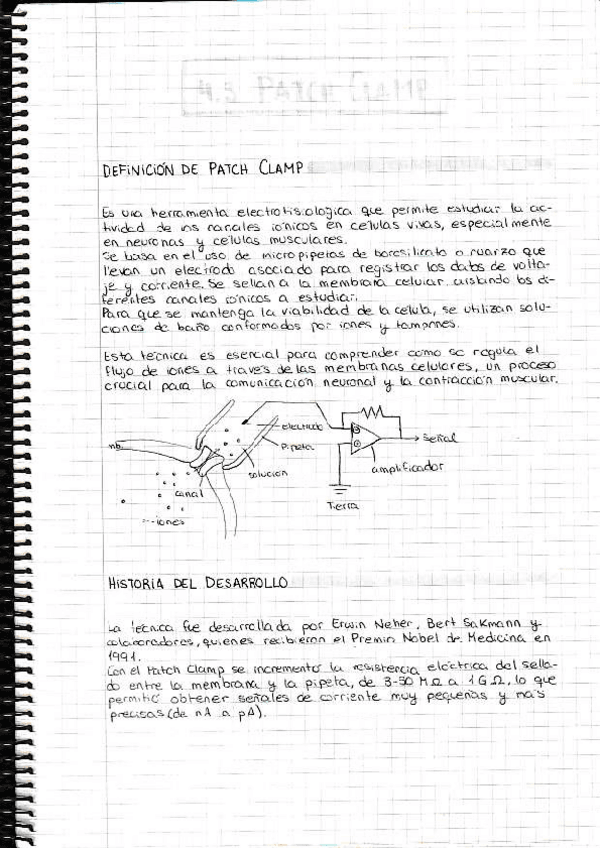 4.3 PATCH CLAMP
DEFINICIÓN DE PATCH CLAMP
Es una herramienta electrofisiologica que permite estudiar la ac-
tividad de los canales iónicos en celulas vivas, especialmente
en neuronas y celulas musculares.
Se basa en el uso de micropipetas de borosilicato o cuarzo que
llevan un electrodo asociado para registrar los datos de volta-
je y corriente. Se sellan a la membrana celular, aislando los di-
ferentes canales iónicos a estudiar.
Para que se mantenga la viabilidad de la celula, se utilizan solu-
ciones de baño conformados por iones y tampones.
Esta técnica es esencial para comprender como se regula el
flujo de iones a través de las membranas celulares, un proceso
crucial para la comunicación neuronal y la contracción muscular.
electrodo
Señal
mb.
Pipeta
amplificador
solucion
canal
Tierra
iones
HISTORIA DEL DESARROLLO
La técnica fue desarrollada por Erwin Neher, Bert Sakmann y
colaboradores, quienes recibieron el Premio Nobel de Medicina en
1991.
Con el Patch Clamp se incrementó la resistencia eléctrica del sella-
do entre la membrana y la pipeta, de 3-50 MΩ a 1 GΩ, lo que
permitió obtener señales de corriente muy pequeñas y más
precisas (de nA a pA).